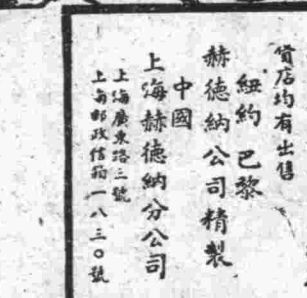 貨店均有出售
紐約 巴黎
赫德納公司精製
中國
上海赫德納分公司
上海廣東路三號
上海郵政信箱一八三〇號